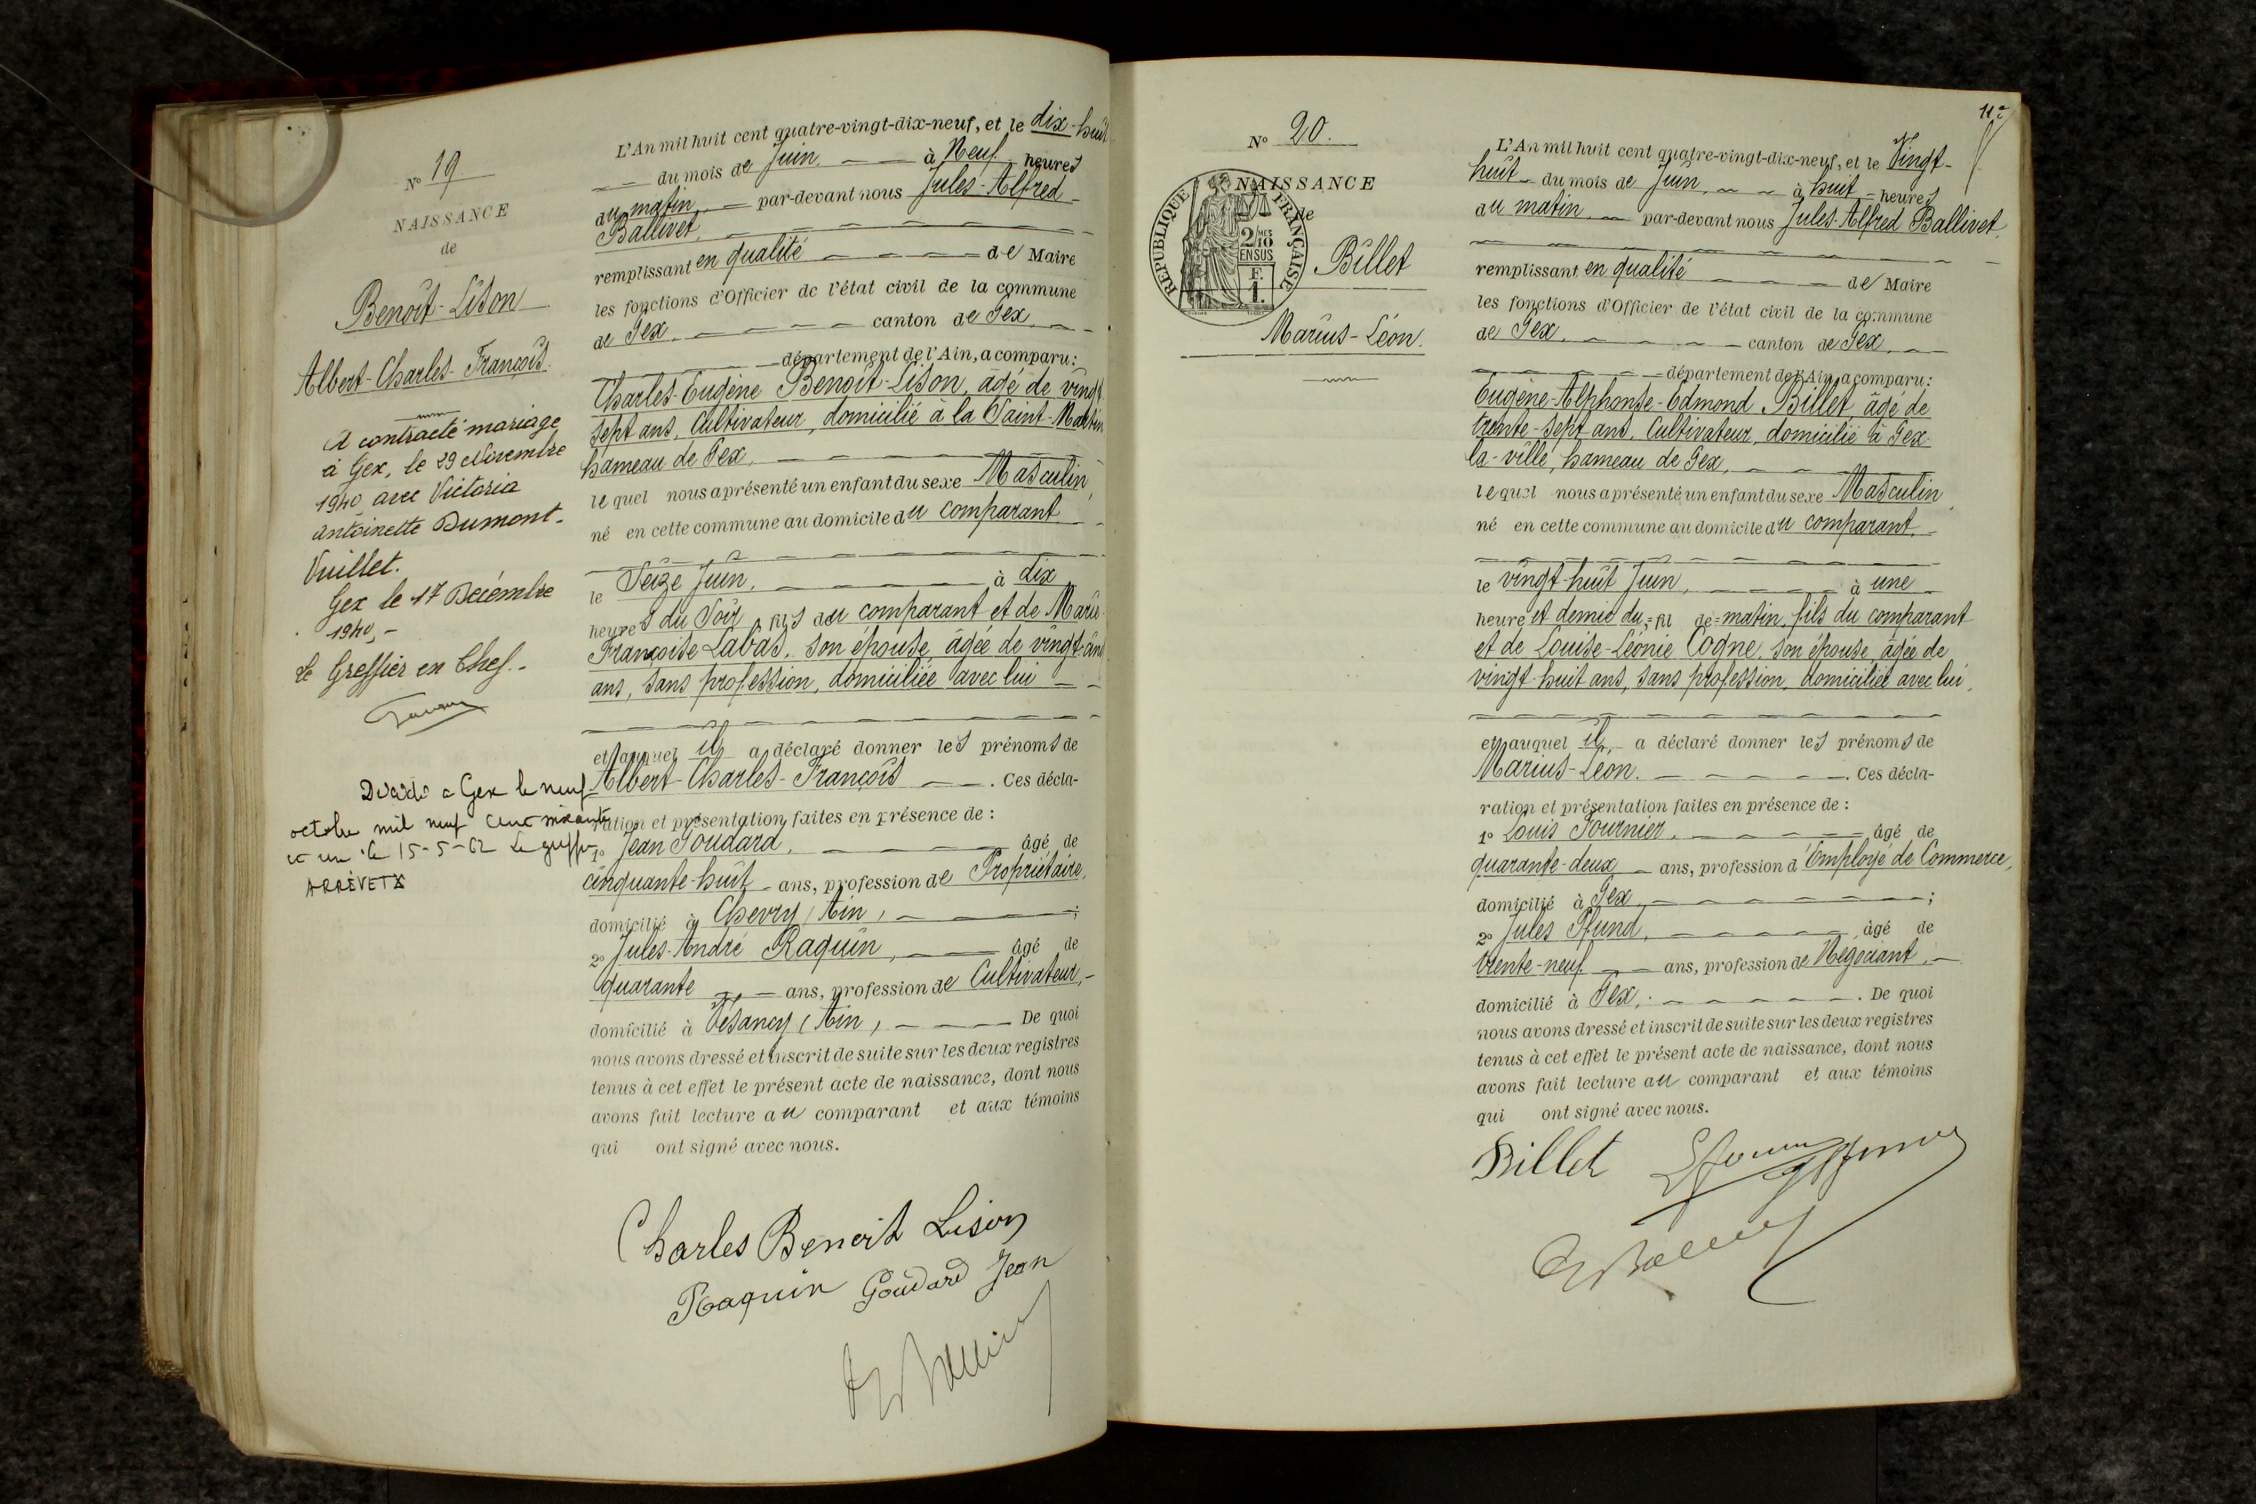 Nº 19
NAISSANCE
de
Benoît-Lison
Albert-Charles-François.
A contracté mariage
à Gex, le 29 Novembre
1940 avec Victoria
Antoinette Dumont-
Vuillet.
Gex le 17 Décembre
1940,-
Le Greffier en Chef.-
à Gex le neuf
octobre mil neuf cent soixante
et un le 15-5-62 Le greffier
L'An mil huit cent quatre-vingt-dix-neuf, et le dix-huit
du mois de Juin, à Neuf heures
du matin, par-devant nous Jules-Alfred
Ballivet,
remplissant en qualité de Maire
les fonctions d'Officier de l'état civil de la commune
de Gex, canton de Gex,
département de l'Ain, a comparu:
Charles-Eugène Benoît-Lison, âgé de vingt
sept ans, Cultivateur, domicilié à la Saint-Martin
hameau de Gex,
lequel nous a présenté un enfant du sexe Masculin,
né en cette commune au domicile du comparant
le Seize Juin, à dix
heures du Soir, fils du comparant et de Marie
Françoise Labas, son épouse, âgée de vingt-un
ans, sans profession, domiciliée avec lui
et auquel il a déclaré donner les prénoms de
Albert-Charles-François. Ces décla-
ration et présentation faites en présence de :
1º Jean Goudard, âgé de
cinquante-huit ans, profession de Propriétaire,
domicilié à Chevry (Ain) ;
2º Jules-André Raquin, âgé de
quarante ans, profession de Cultivateur,
domicilié à Vesancy (Ain), De quoi
nous avons dressé et inscrit de suite sur les deux registres
tenus à cet effet le présent acte de naissance, dont nous
avons fait lecture au comparant et aux témoins
qui ont signé avec nous.
Charles Benoit Lison
Raquin Goudard Jean
Nº 20.
NAISSANCE
de
REPUBLIQUE FRANÇAISE
2/10 MES
EN SUS
F.
1.
Billet
Marius-Léon.
L'An mil huit cent quatre-vingt-dix-neuf, et le Vingt-
huit du mois de Juin, à huit heures
du matin, par-devant nous Jules-Alfred Ballivet,
remplissant en qualité de Maire
les fonctions d'Officier de l'état civil de la commune
de Gex, canton de Gex,
département de l'Ain, a comparu:
Eugène-Alphonse-Edmond Billet, âgé de
trente-sept ans, Cultivateur, domicilié à Gex-
la-ville, hameau de Gex,
lequel nous a présenté un enfant du sexe Masculin,
né en cette commune au domicile du comparant,
le vingt-huit Juin, à une
heure et demie du =fil de= matin, fils du comparant
et de Louise-Léonie Cogne, son épouse, âgée de
vingt-huit ans, sans profession, domiciliée avec lui,
et auquel il, a déclaré donner les prénoms de
Marius-Léon. Ces décla-
ration et présentation faites en présence de :
1º Louis Fournier, âgé de
quarante-deux ans, profession d'Employé de Commerce,
domicilié à Gex, ;
2º Jules Pfund, âgé de
trente-neuf ans, profession de Négociant,
domicilié à Gex, . De quoi
nous avons dressé et inscrit de suite sur les deux registres
tenus à cet effet le présent acte de naissance, dont nous
avons fait lecture au comparant et aux témoins
qui ont signé avec nous.
Billet